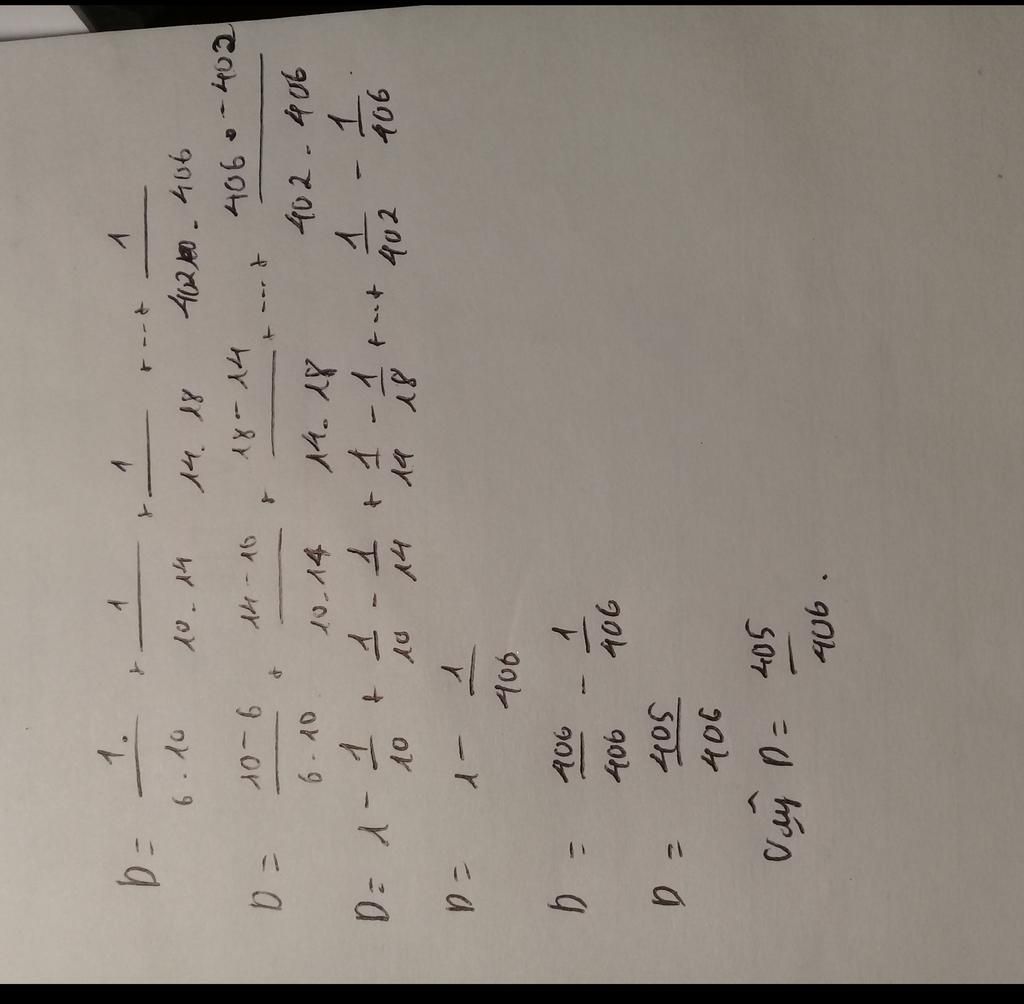 D = 1/(6 . 10) + 1/(10 . 14) + 1/(14 . 18) + ... + 1/(402 . 406)
D = (10 - 6)/(6 . 10) + (14 - 10)/(10 . 14) + (18 - 14)/(14 . 18) + ... + (406 - 402)/(402 - 406)
D = 1 - 1/10 + 1/10 - 1/14 + 1/14 - 1/18 + ... + 1/402 - 1/406
D = 1 - 1/406
D = 406/406 - 1/406
D = 405/406
Vậy D = 405/406 .